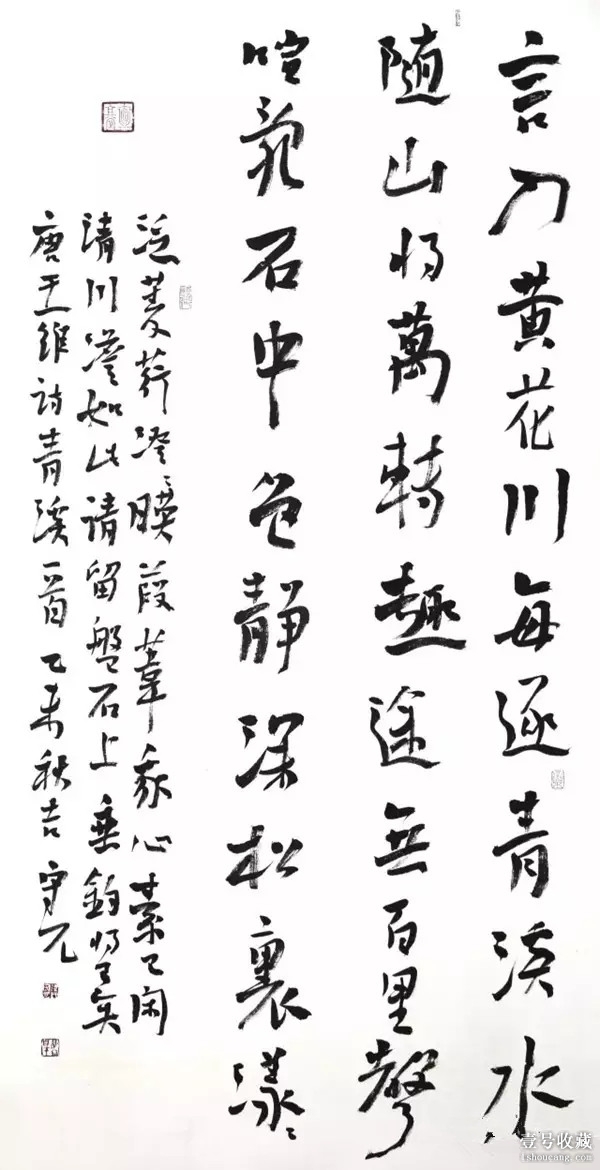 言入黄花川每逐青溪水
随山将萬转趣途無百里聲
喧乱石中色静深松裏漾〻
泛菱荇澄〻映葭葦我心素已闲
清川澹如此请留盤石上垂钓将已矣
唐王维诗青溪一首乙未秋吉守元
壹号收藏
1shoucang.com